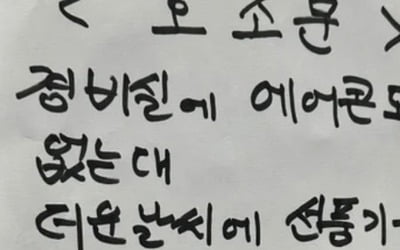 < 호소문 >
경비실에 에어콘도
없는대
더운날씨에 선풍기